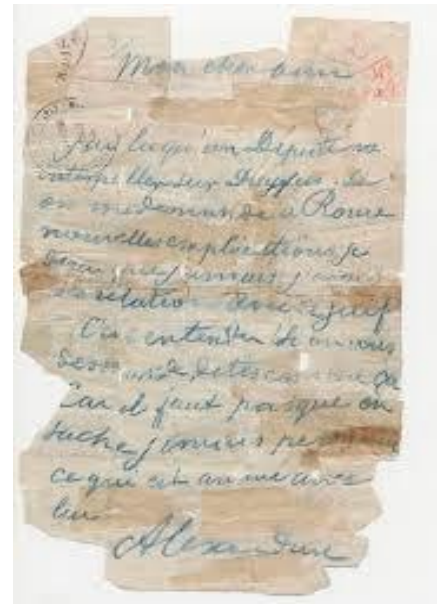 Mon cher ami
J'ai lu qu'un Député va
interpeller sur Dreyfus. Si
on me demande à Rome
nouvelles explications je
dirai que jamais j'avais
relations avec ce juif
C'est entendu. Si on vous
demande, dites comme ça
Car il faut pas que on
sache jamais personne
ce qui est arrivé avec
lui
Alexandrine